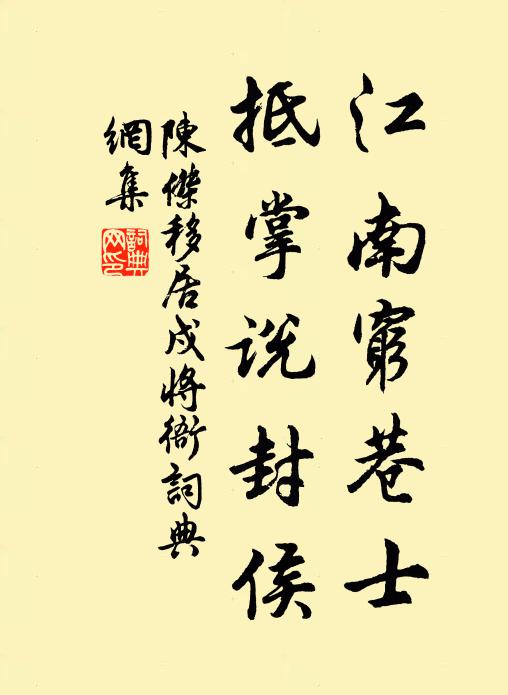 江南窮巷士
抵掌説封侯
陳傑移居戍將衙詞典
網集
詞典網印